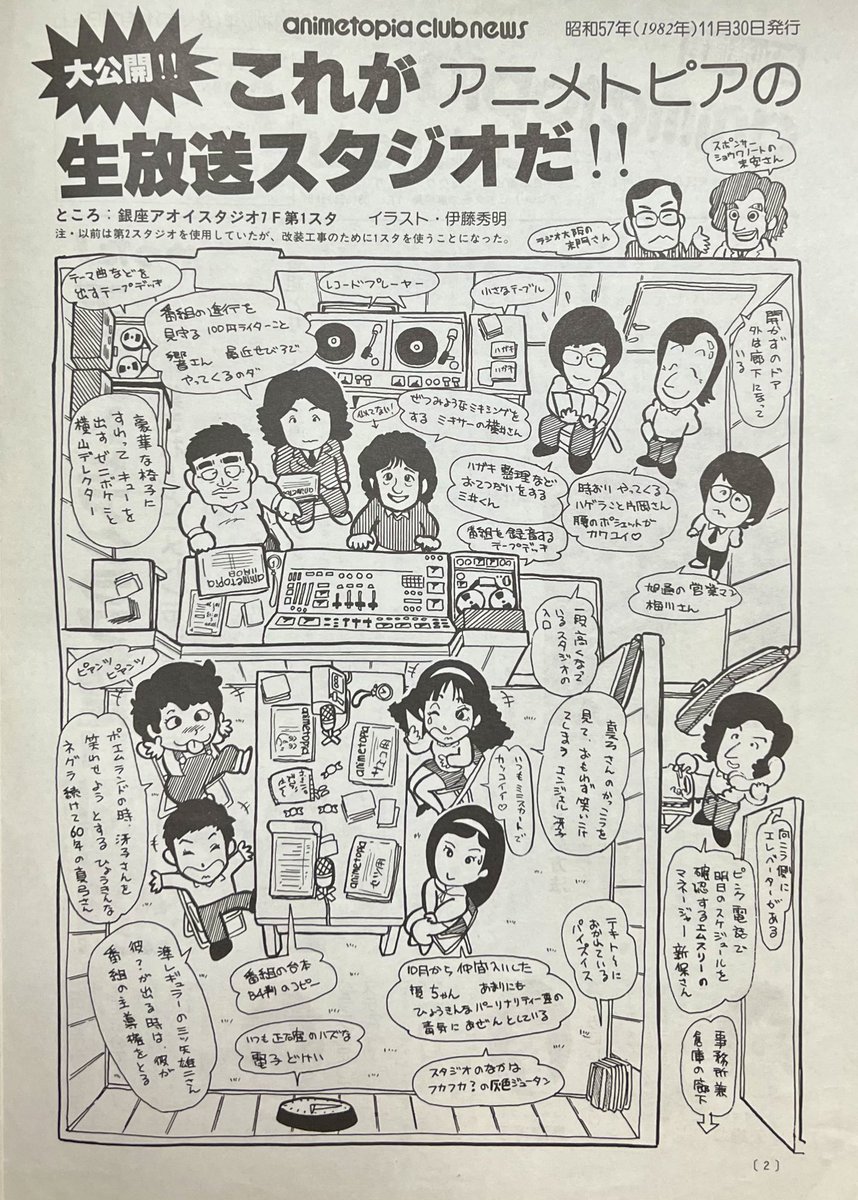 animetopia club news
昭和57年(1982年)11月30日発行
大公開!!
これがアニメトピアの
生放送スタジオだ!!
ところ:銀座アオイスタジオ7F第1スタ イラスト・伊藤秀明
注・以前は第2スタジオを使用していたが、改装工事のために1スタを使うことになった。
スポンサー
ショウワノートの
末安さん
ラジオ大阪の
本門さん
テーマ曲などを
出すテープデッキ
番組の進行を
見守る100円ライターこと
響エん 最近せびろで
やってくるのダ
レコードプレーヤー
小さなテーブル
ハガキ
ハガキ
開かずのドア
外は廊下になって
いる
豪華な椅子に
すわって キューを
出すゼニボケこと
横山デレクター
似てない!
ぜつみようなミキシングを
する ミキサーの横井さん
ハガキ整理など
おてつだいをする
三井くん
時おり やってくる
ハゲラこと片岡さん
腰のポシェットが
カワユイ♡
番組を録音する
テープデッキ
旭通の営業マン
梅川さん
animetopia
一段高くなって
いるスタジオの
入口
ピアンツ
ピアンツ
ポエムランドの時、冴子さんを
笑わせようとするひょうきんな
ネグラ続けて60年の真弓さん
animetopia
animetopia
サエコ用
animetopia
セツ用
いつもミニスカートで
カッコイイ♡
真弓さんのかっこうを
見て、おもわず笑いこけ
てしまう エンジェル冴子
向こう側に
エレベーターがある
ピンク電話で
明日のスケジュールを
確認するエムスリーの
マネージャー 新保さん
テキトーに
おかれている
パイプイス
準レギュラーの三ツ矢雄二さん
彼?が出る時は、彼が
番組の主導権をとる
番組の台本
B4判のコピー
10月から仲間入りした
あまりにも
ひょうきんなパーソナリティー達の
毒気にあぜんとしている
いつも正確のハズな
電子どけい
スタジオのなかは
フカフカ?の灰色ジュータン
事務所兼
倉庫の廊下
〔2〕